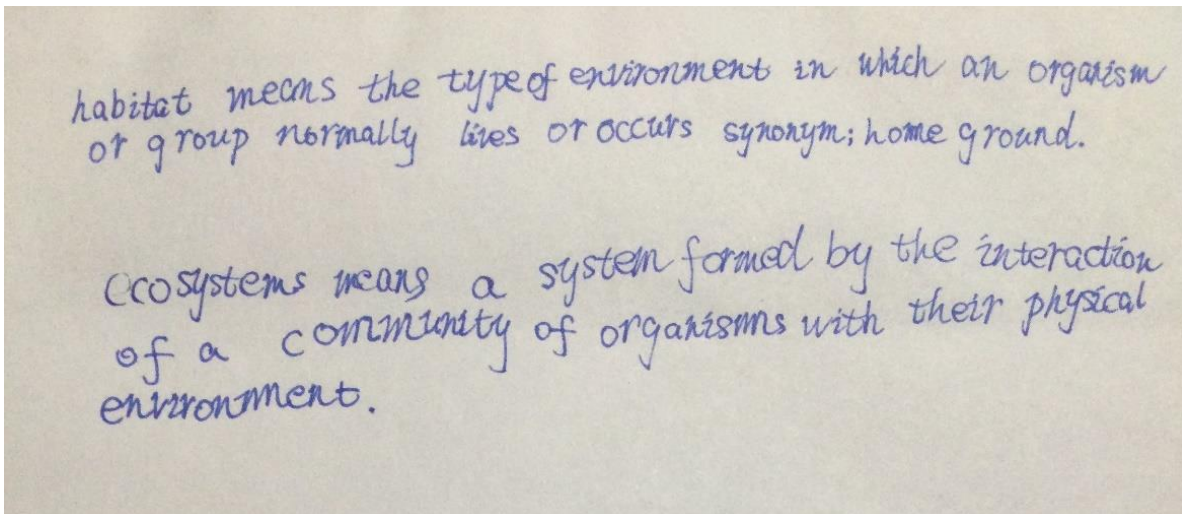 habitat means the type of environment in which an organism
or group normally lives or occurs synonym; home ground.
ecosystems means a system formed by the interaction
of a community of organisms with their physical
environment.